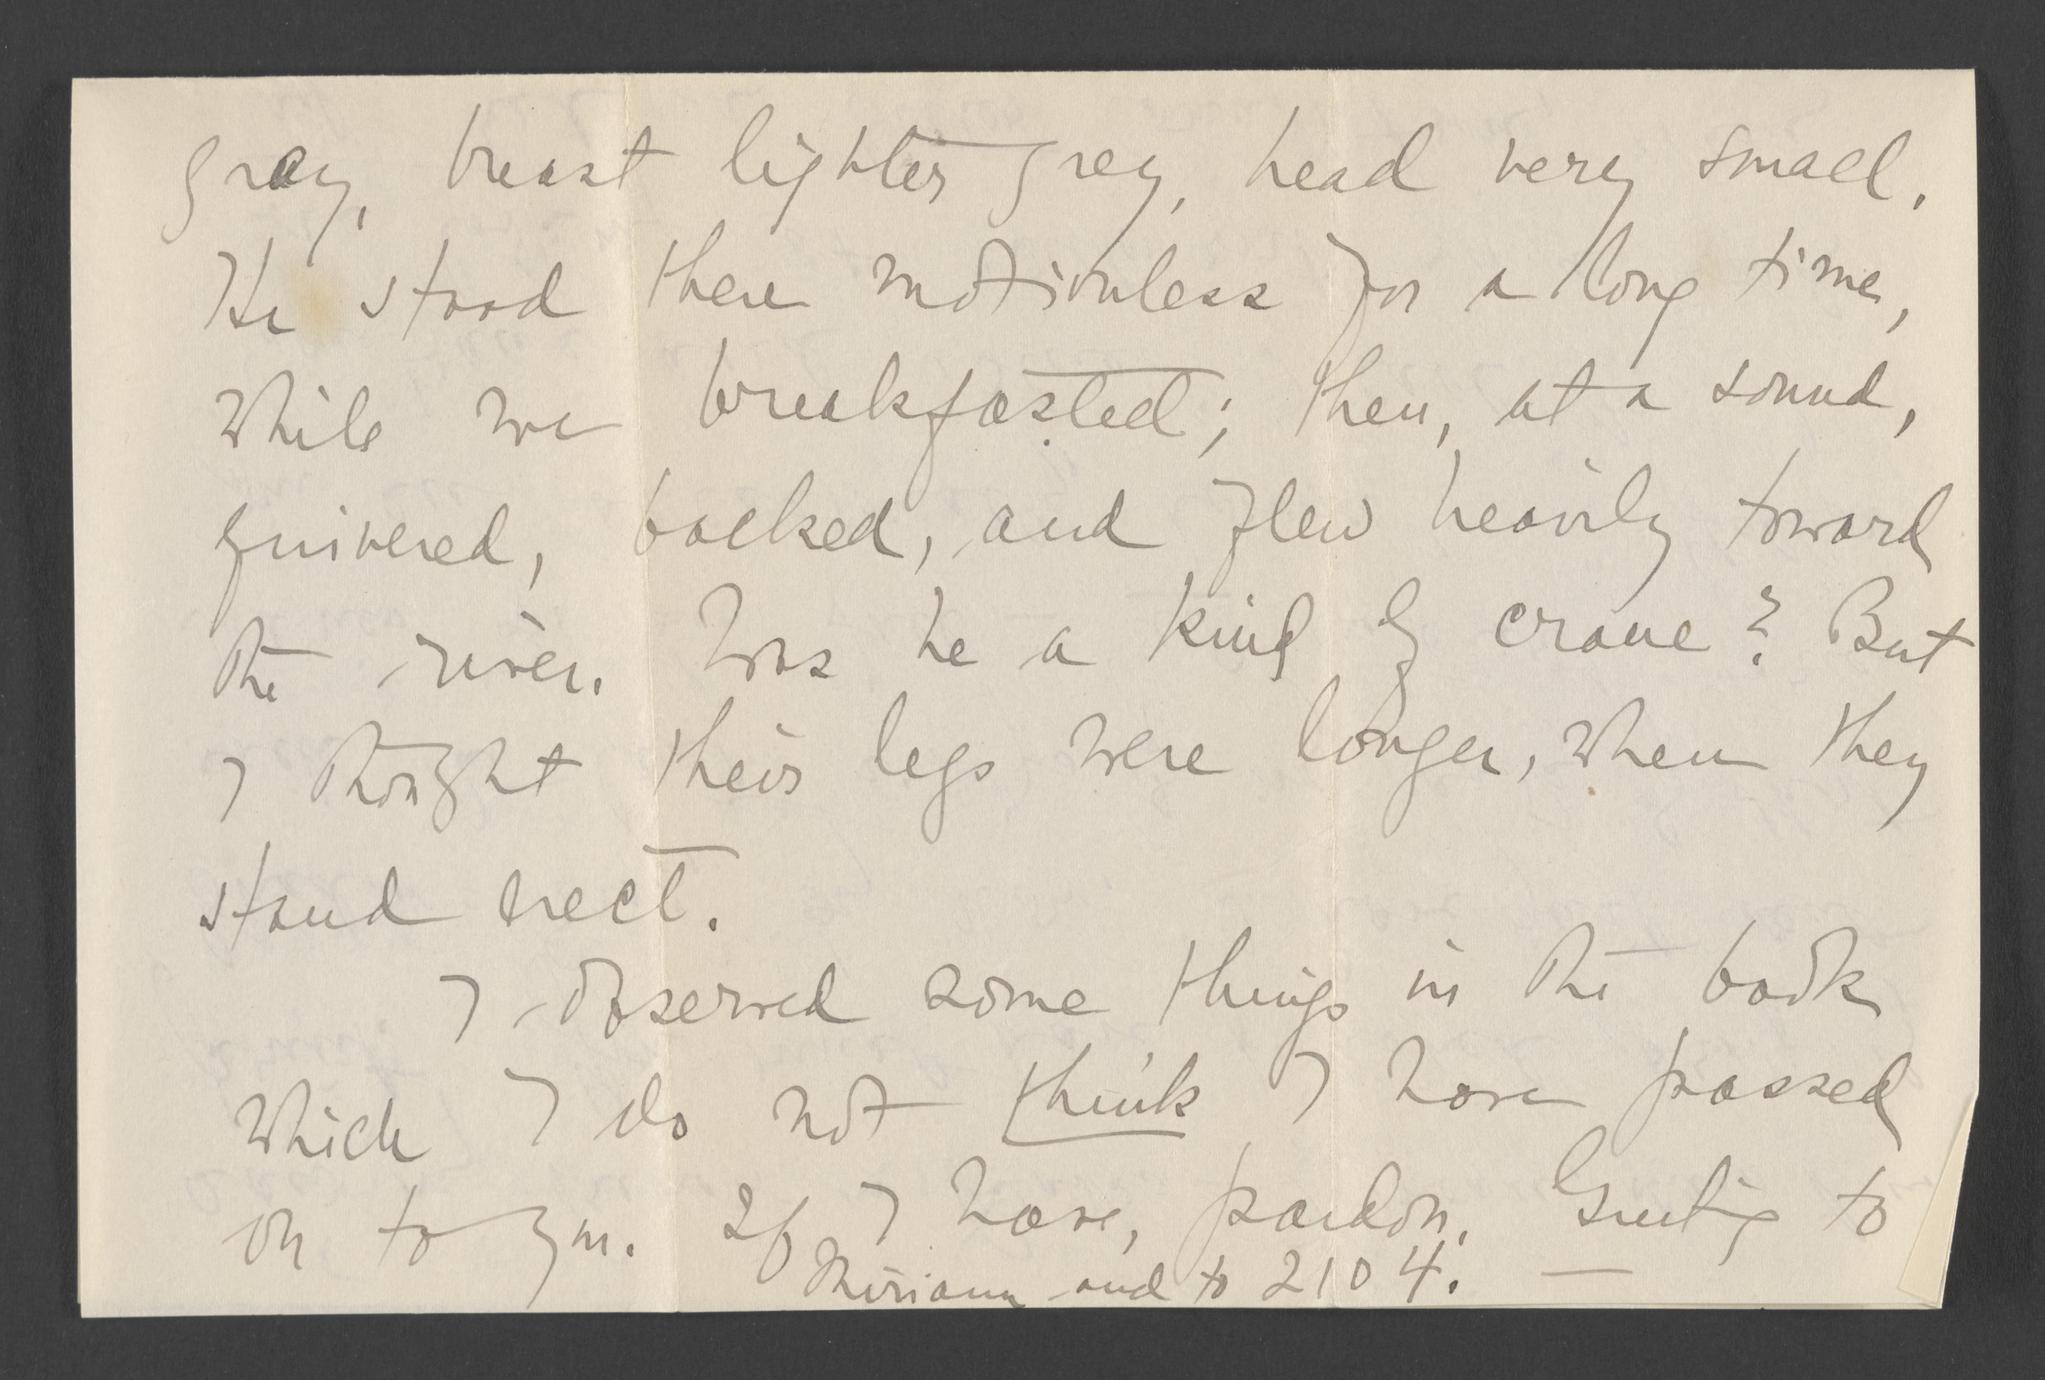 gray, breast lighter grey, head very small.
He stood there motionless for a long time,
while we breakfasted; then, at a sound,
quivered, backed, and flew heavily toward
the river. Was he a kind of crane? But
I thought their legs were longer, when they
stand erect.
I observed some things in the book
which I do not think I have passed
on to you. If I have, pardon. Greeting to
Miriam and to 2104. —